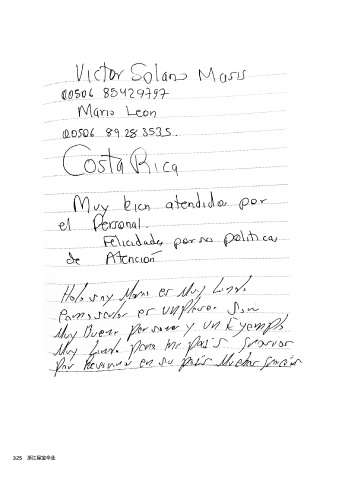 Victor Solano Masis
00506 85429797
Mario Leon
00506 89 28 3535.
Costa Rica
Muy bien atendido por
el Personal.
Felicidades por su politica
de Atención
Hola soy Mario es Muy Lindo
es un placer Son
Muy Buena Persona y un Exemplo
Muy Lindo para mi país Gracias
Por en su país Muchas gracias
325 浙江